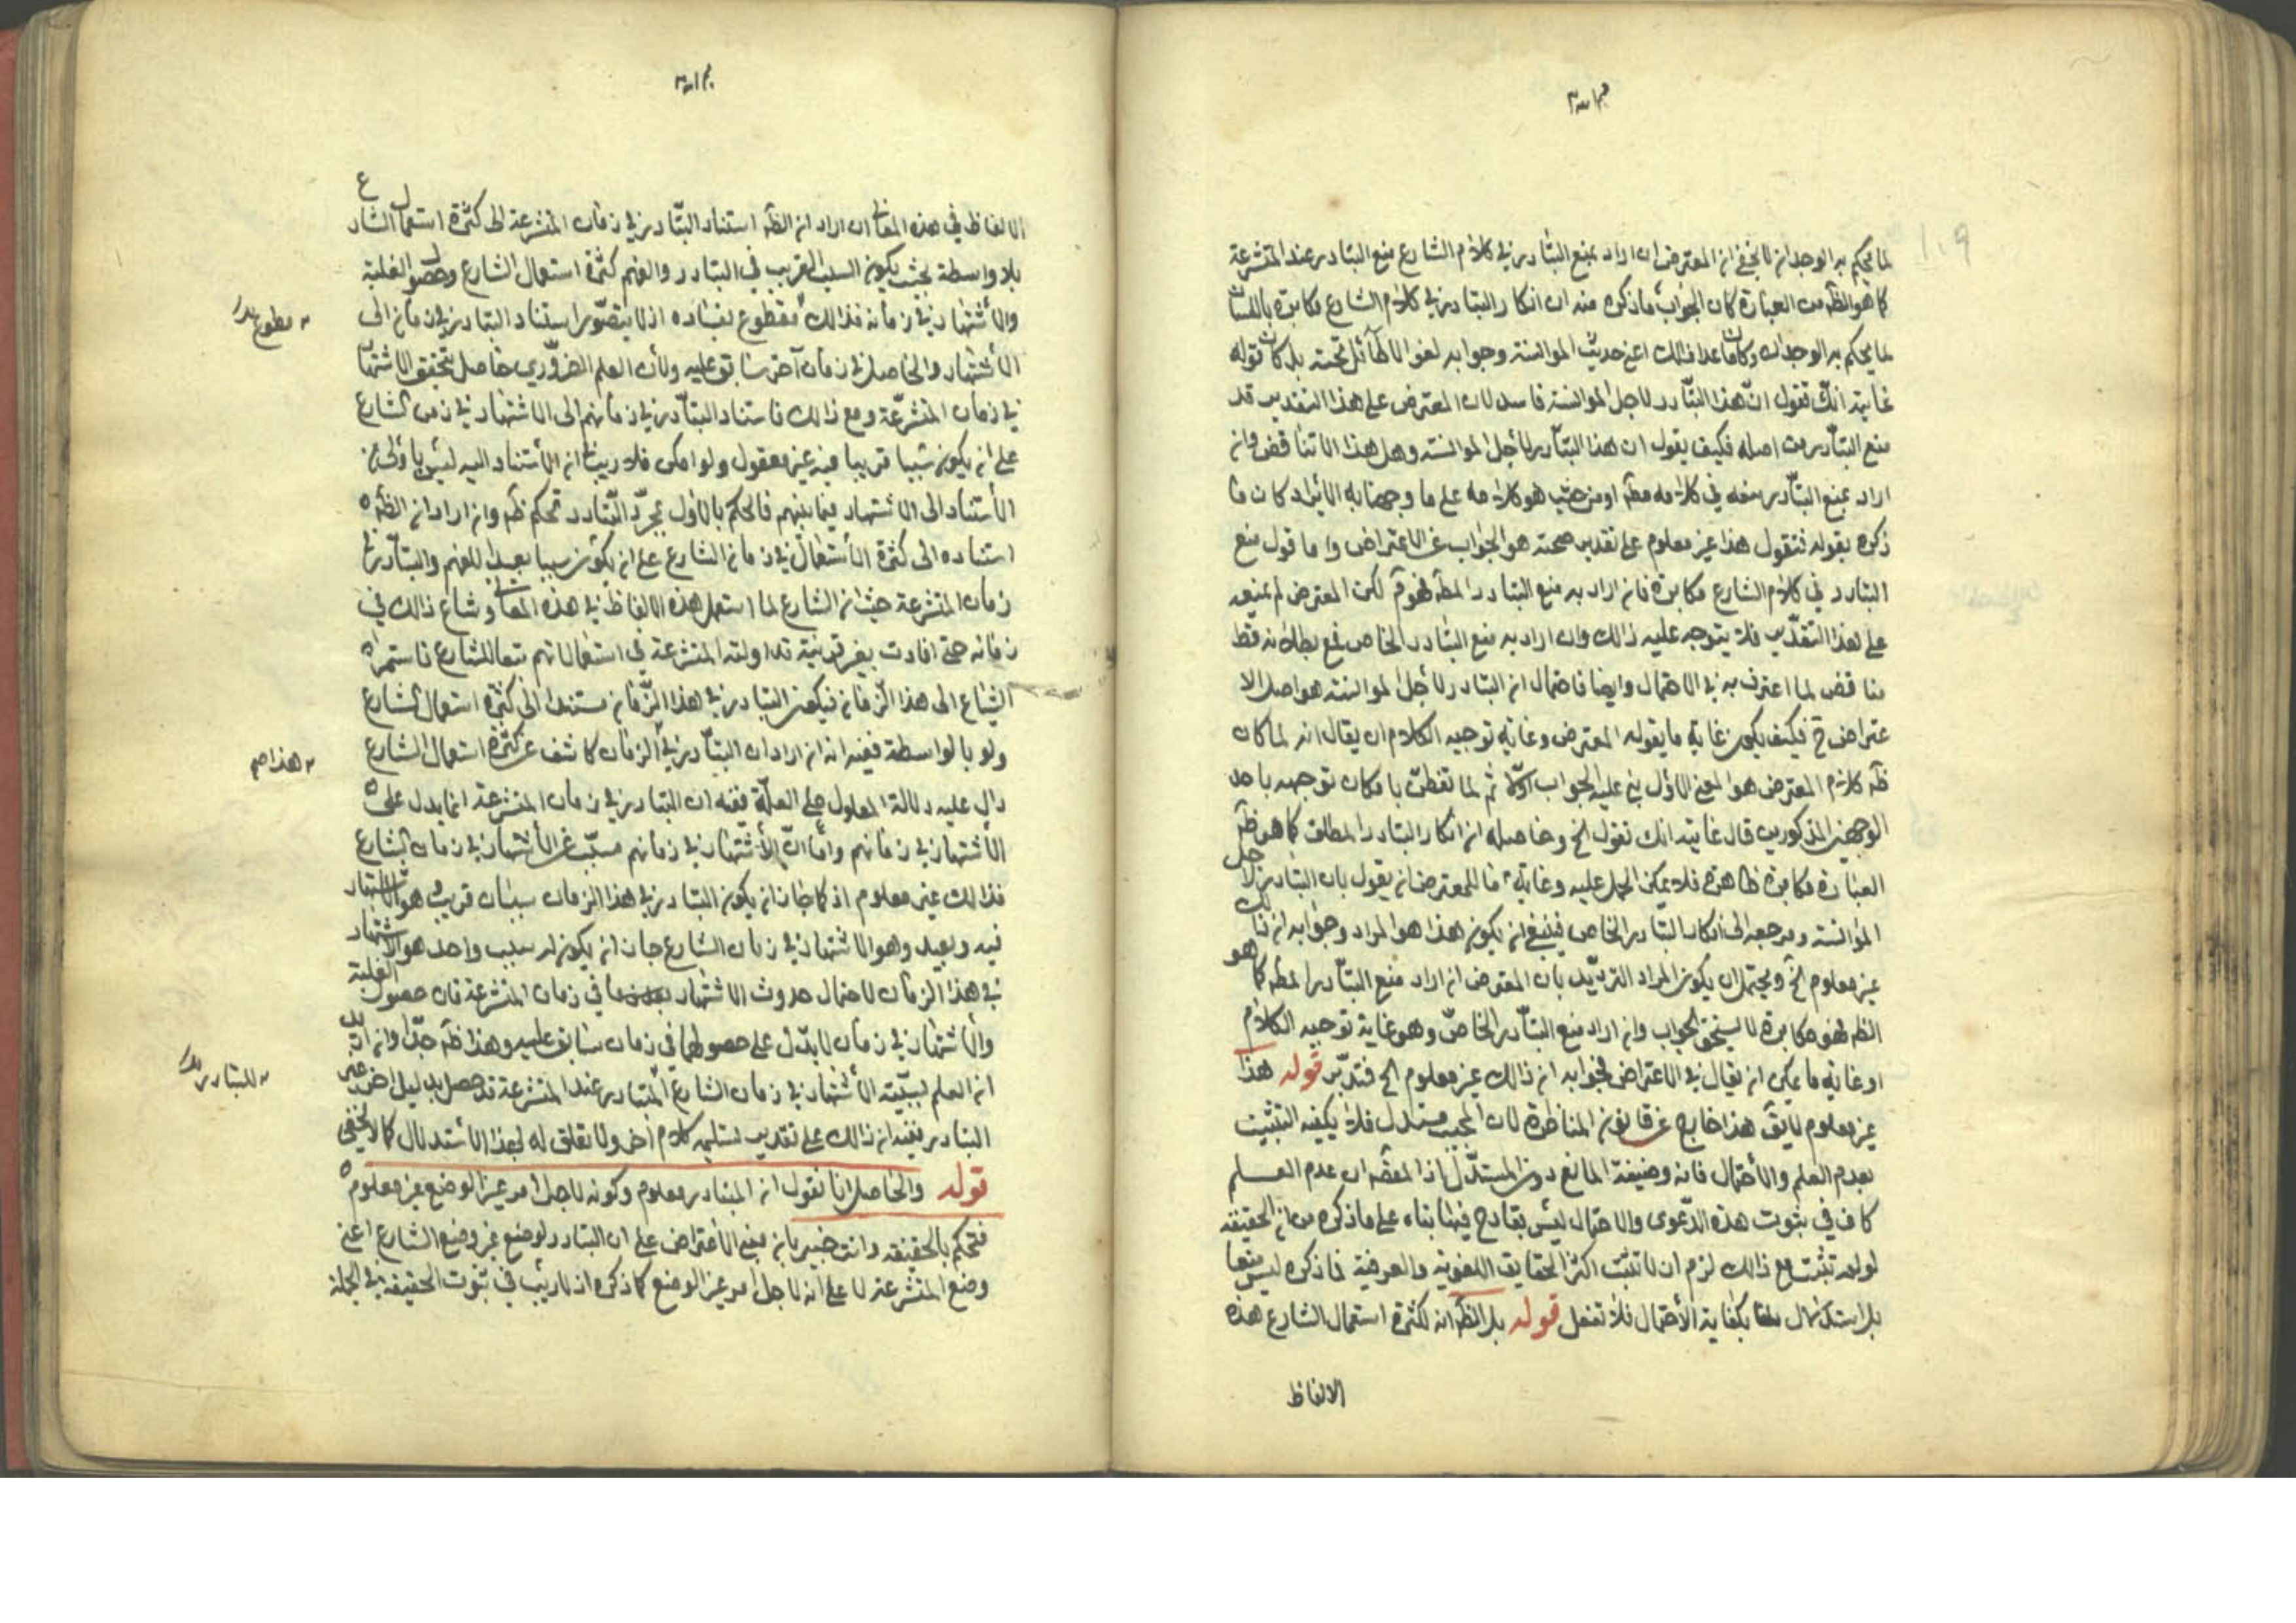 لما يحكم به الوجدان لا يخفى ان المعترض ان اراد بمنع التبادر في كلام الشارع منع التبادر عند المتشرعة
كما هو الظه من العبارة كان الجواب ما ذكره منه ان انكار التبادر في كلام الشارع مكابرة باللسان
لما يحكم به الوجدان وكان ما عدا ذلك اعنى حديث الموانسة وجوابه لغوا لا طائل تحته بل كان قوله
غايته انك تقول ان هذا التبادر لاجل الموانسة فاسد لان المعترض على هذا التقدير قد
منع التبادر من اصله فكيف يقول ان هذا التبادر لاجل الموانسة وهل هذا الا تناقض وان
اراد بمنع التبادر منعه في كلامه مطه او من حيث هو كلامه على ما وجهنا به الايراد كان ما
ذكره بقوله فنقول هذا غير معلوم على تقدير صحته هو الجواب عن الاعتراض واما قول منع
التبادر في كلام الشارع مكابرة فان اراد به منع التبادر المطه فهو قم لكن المعترض لم يمنعه
على هذا التقدير فلا يتوجه عليه ذلك وان اراد به منع التبادر الخاص فمع بطلانه فقط
مناقض لما اعترف به في الاحتمال وايضا فاحتمال ان التبادر لاجل الموانسة هو اصل الا
عتراض ح فكيف يكون غاية ما يقوله المعترض وغاية توجيه الكلام ان يقال انه لما كان
ظه كلام المعترض هو المعنى الاول بنى عليه الجواب اولا ثم لما تفطن بامكان توجيهه باحد
الوجهين المذكورين قال غايته انك تقول الخ وحاصله ان انكار التبادر المطلق كما هو ظه
العبارة مكابرة ظاهرة فلا يمكن الحمل عليه وغاية ما للمعترض ان يقول بان التبادر لاجل
الموانسة ومرجعه الى انكار التبادر الخاص فينبغي ان يكون هذا هو المراد وجوابه ان ذلك
غير معلوم الخ ويحتمل ان يكون المراد الترديد بان المعترض ان اراد منع التبادر المطه كما هو
الظه فهو مكابرة لا يستحق الجواب وان اراد منع التبادر الخاص وهو غاية توجيه الكلام
او غاية ما يمكن ان يقال في الاعتراض فجوابه ان ذلك غير معلوم الخ فتدبر قوله هذا
غير معلوم لا يق هذا خارج عن قانون المناظرة لان المجيب مستدل فلا يكفيه التشبث
بعدم العلم والاحتمال فانه وضيفة المانع دون المستدل اذ المقصه ان عدم العلم
كاف في ثبوت هذه الدعوى والاحتمال ليس بقادح فيها بناء على ما ذكره من ان الحقيقة
لو لم تثبت مع ذلك لزم ان لا تثبت اكثر الحقايق اللغوية والعرفية فما ذكره ليس منعا
بل استدلال بكفاية الاحتمال فلا تغفل قوله بل الظه انه لكثرة استعمال الشارع هذه
الالفاظ
الالفاظ في هذه المعانى ان اراد ان الظه استناد التبادر في زمان المتشرعة الى كثرة استعمال الشارع
بلا واسطة بحيث يكون السبب القريب في التبادر والفهم كثرة استعمال الشارع وحصول الغلبة
والاشتهار في زمانه فذلك مقطوع بفساده اذ لا يتصور استناد التبادر في زمان الى
الاشتهار والحاصل في زمان آخر سابق عليه ولان العلم الضروري حاصل بتحقق الاشتهار
في زمان المتشرعة ومع ذلك فاستناد التبادر في زمانهم الى الاشتهار في زمن الشارع
على ان يكون سببا قريبا فيه غير معقول ولو امكن فلا ريب ان الاستناد اليه ليس باولى من
الاستناد الى الاشتهار فيما بينهم فالحكم بالاول بمجرد التبادر تحكم ظه وان اراد ان الظه
استناده الى كثرة الاستعمال في زمان الشارع على ان يكون سببا بعيدا للفهم والتبادر في
زمان المتشرعة حيث ان الشارع لما استعمل هذه الالفاظ في هذه المعانى وشاع ذلك في
زمانه حتى افادت بغير قرينة تداولته المتشرعة في استعمالاتهم تبعا للشارع فاستمر
الشياع الى هذا الزمان فيكون التبادر في هذا الزمان مستندا الى كثرة استعمال الشارع
ولو بالواسطة ففيه انه ان اراد ان التبادر في الزمان كاشف عن كثرة استعمال الشارع
دال عليه دلالة المعلول على العلة ففيه ان التبادر في زمان المتشرعة انما يدل على
الاشتهار في زمانهم واما ان الاشتهار في زمانهم مسبب عن الاشتهار في زمان الشارع
فذلك غير معلوم اذ كما جاز ان يكون التبادر في هذا الزمان سببان قريب وهو الاشتهار
فيه وبعيد وهو الاشتهار في زمان الشارع جاز ان يكون له سبب واحد هو الاشتهار
في هذا الزمان لاحتمال حدوث الاشتهار في زمان المتشرعة فان حصول الغلبة
والاشتهار في زمان لا يدل على حصولهما في زمان سابق عليه وهذا ظه جدا وان اريد
ان العلم بسببية الاشتهار في زمان الشارع المتبادر عند المتشرعة قد حصل بدليل اخر غير
التبادر ففيه ان ذلك على تقدير تسليمه كلام اخر ولا تعلق له بهذا الاستدلال كما لا يخفى
قوله والحاصل انا نقول ان المتبادر معلوم وكونه لاجل امر غير الوضع غير معلوم
فتحكم بالحقيقة وانت خبير بان مبنى الاعتراض على ان التبادر لوضع غير وضع الشارع اعنى
وضع المتشرعة لا على انه لاجل امر غير الوضع كما ذكره اذ لا ريب في ثبوت الحقيقة في الجملة